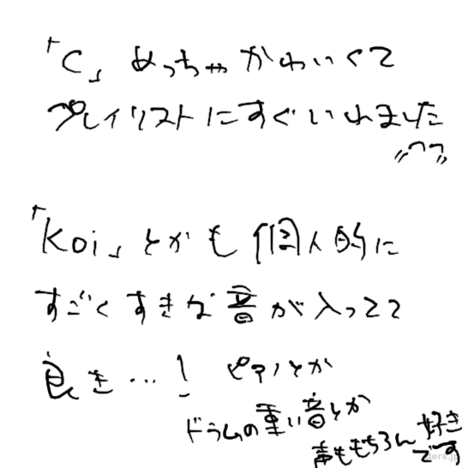 「C」めっちゃかわいくて
プレイリストにすぐいれました
「Koi」とかも個人的に
すごくすきな音が入ってて
良き…！ピアノとか
ドラムの重い音とか
声ももちろん好き
です